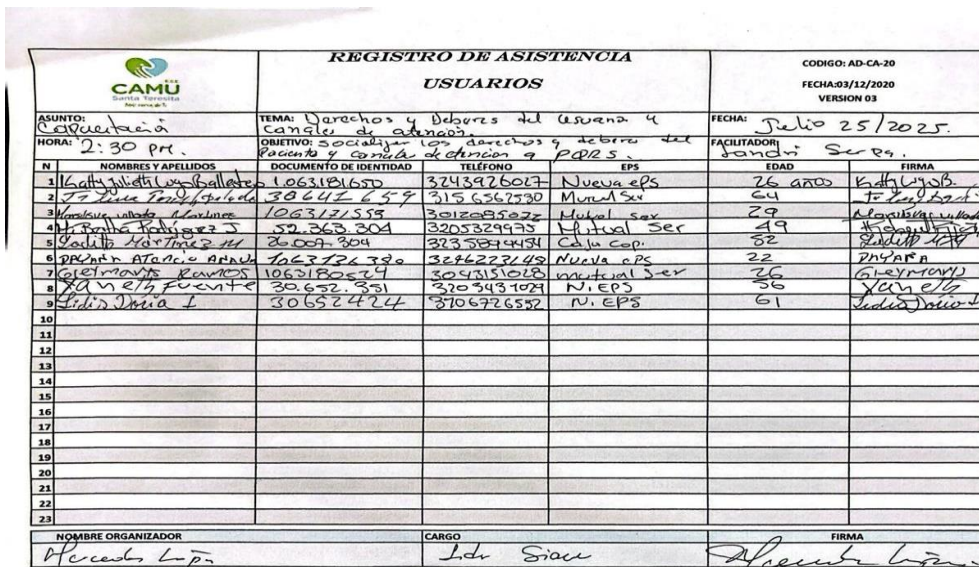 REGISTRO DE ASISTENCIA
USUARIOS
E.S.E
CAMU
Santa Teresita
CODIGO: AD-CA-20
FECHA:03/12/2020
VERSION 03
ASUNTO: Capacitación
TEMA: Derechos y Deberes del usuario y canales de atención.
FECHA: Julio 25/2025.
HORA: 2:30 pm.
OBJETIVO: socializar los derechos y deberes del Paciente y canales de atencion a PQRS.
FACILITADOR Sandri Serpa.
N NOMBRES Y APELLIDOS DOCUMENTO DE IDENTIDAD TELÉFONO EPS EDAD FIRMA
1 Katty Julieth Lugo Ballesteros 1.063.181.650 3243926027 Nueva eps 26 años Katty Lugo B.
2 30641659 3156562530 Mutual Ser 64
3 Martinez 1063171555 3012095072 Mutual Ser 29
4 Bertha Rodriguez J 52.363.304 3205329975 Mutual Ser 49
5 Judith Martinez M 26.007.304 3235894454 Caja Cop. 52 Judith
6 Dayana Atencio 1063736380 3246223148 Nueva ePS 22 Dayana
7 Greymaris Ramos 1063180524 3043151028 mutual Ser 26 Greymaris
8 Yaneth Fuente 30.652.351 3205431029 N. EPS 56 Yaneth
9 Lidis Doria L 30652424 3706726552 N. EPS 61 Lidis Doria L
10
11
12
13
14
15
16
17
18
19
20
21
22
23
NOMBRE ORGANIZADOR CARGO FIRMA
Mercedes Lidr Siau Mercedes